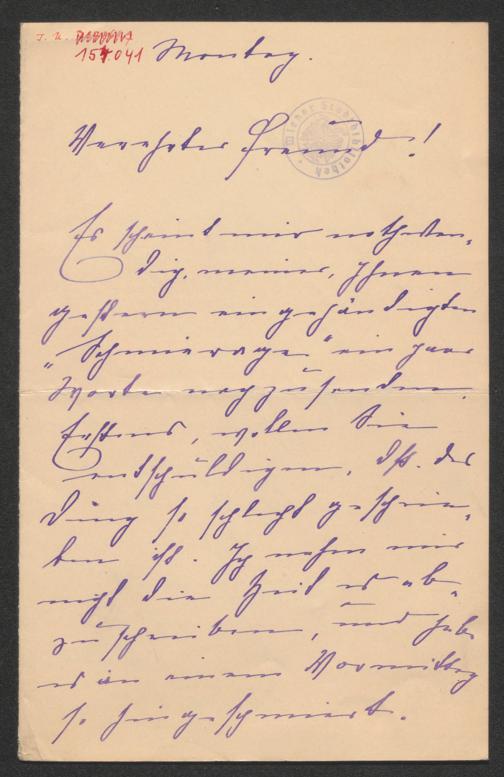 J. N.
157.041
Montag.
Wiener Stadtbibliothek
Verehrter Freund!
Es scheint mir nothwen-
dig, meiner, Ihnen
gestern eingehändigten
„Schmierage" ein paar
Worte nachzusenden.
Erstens, wollen Sie
entschuldigen, dß. das
Ding so schlecht geschrie-
ben ist. Ich nahm mir
nicht die Zeit es ab-
zuschreiben, und habe
es in einem Vormittag
so hingeschmiert.